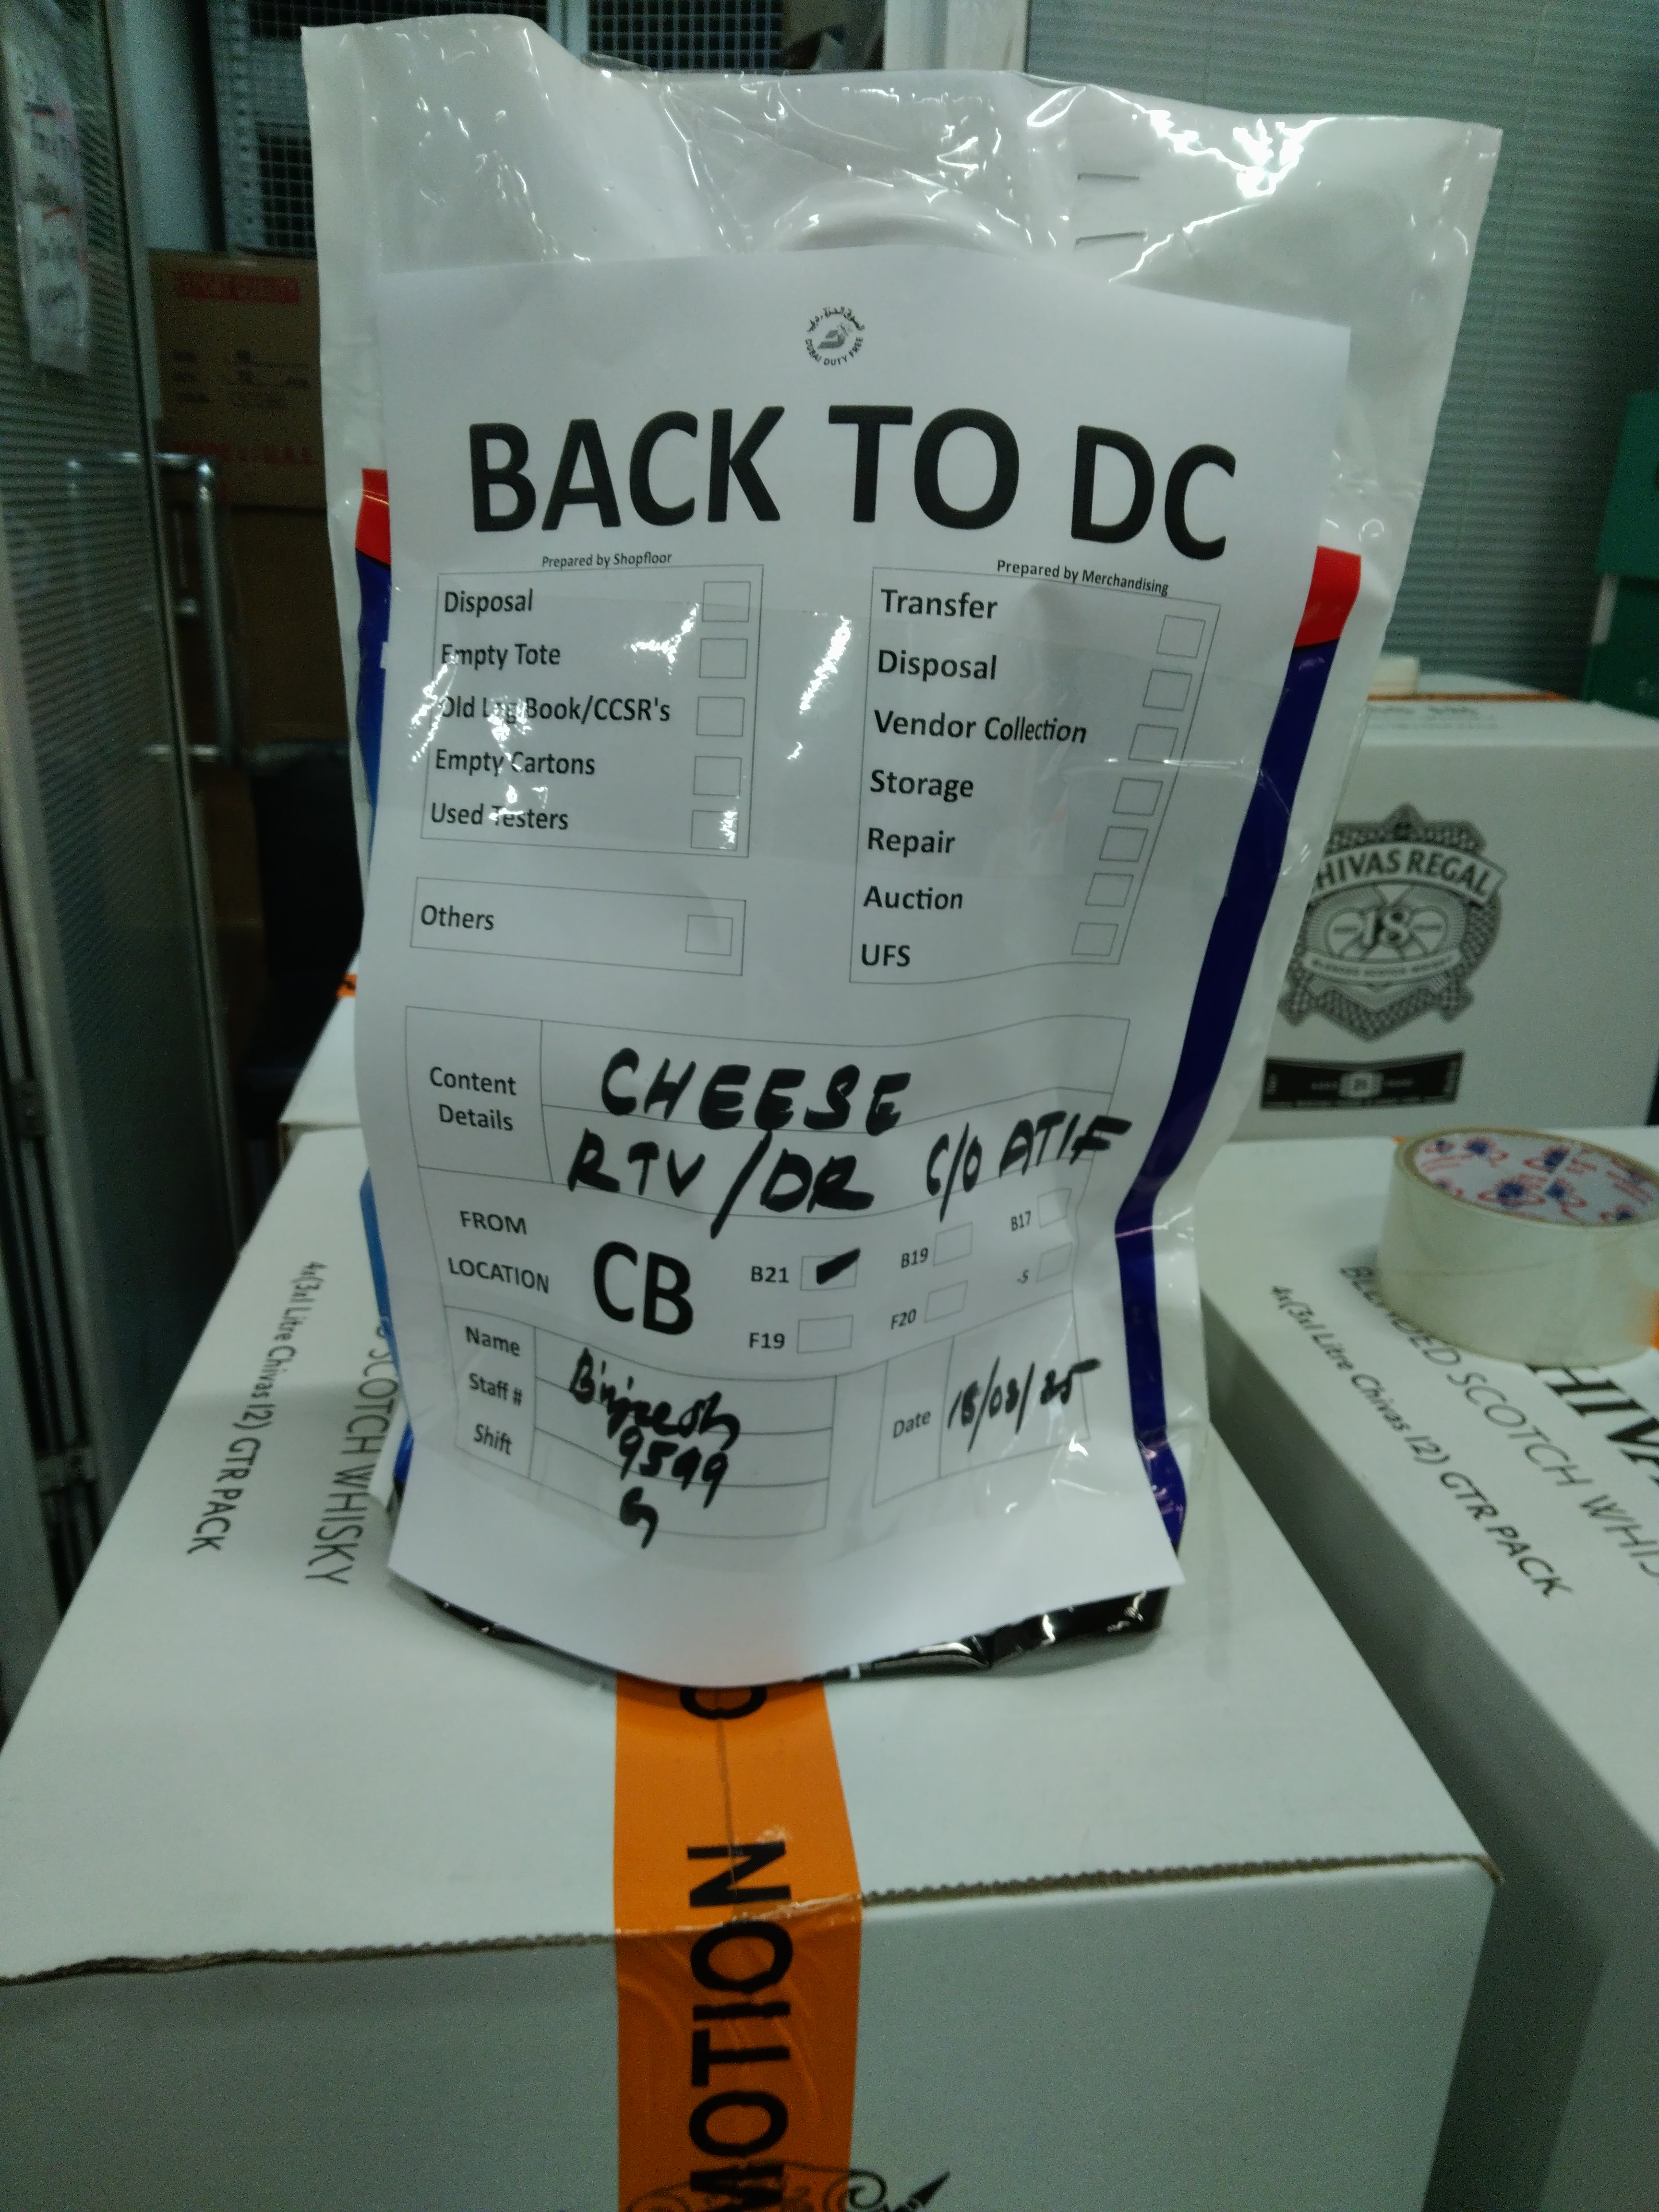 DUBAI DUTY FREE
BACK TO DC
Prepared by Shopfloor
Disposal
Empty Tote
Old Log Book/CCSR's
Empty Cartons
Used Testers
Others
Prepared by Merchandising
Transfer
Disposal
Vendor Collection
Storage
Repair
Auction
UFS
Content Details
CHEESE
RTV/DR C/O ATIF
FROM LOCATION
CB
B21
B19
B17
F19
F20
-5
Name
Staff #
9599
Shift
G
Date
CHIVAS REGAL
18
4x(3x1 Litre Chivas 12) GTR PACK
SCOTCH WHISKY
4x(3x1 Litre Chivas 12) GTR PACK
BLENDED SCOTCH WHIS
HIVA
MOTION